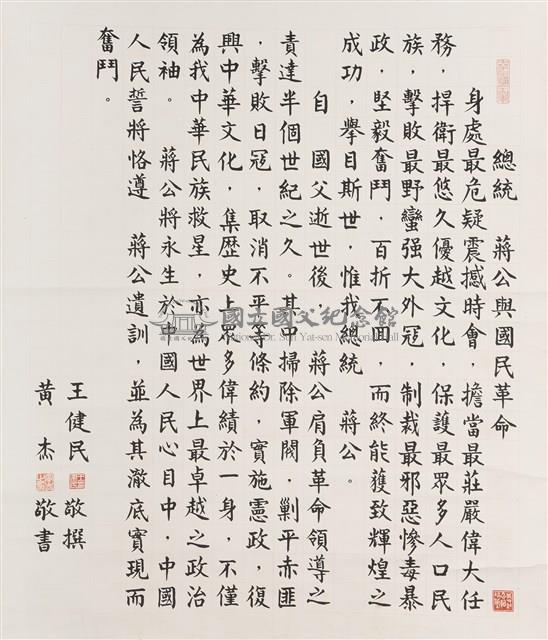 總統　蔣公與國民革命
身處最危疑震撼時會，擔當最莊嚴偉大任
務，捍衛最悠久優越文化，保護最眾多人口民
族，擊敗最野蠻强大外寇，制裁最邪惡慘毒暴
政，堅毅奮鬥，百折不回，而終能獲致輝煌之
成功，舉目斯世，惟我總統　蔣公。
自　國父逝世後，　蔣公肩負革命領導之
責達半個世紀之久。其中掃除軍閥，剿平赤匪
，擊敗日寇，取消不平等條約，實施憲政，復
興中華文化，集歷史上眾多偉績於一身，不僅
為我中華民族救星，亦為世界上最卓越之政治
領袖。　蔣公將永生於中國人民心目中，中國
人民誓將恪遵　蔣公遺訓，並為其澈底實現而
奮鬥。
王健民　敬撰
黃　杰　敬書
國立國父紀念館
National Dr. Sun Yat-sen Memorial Hall